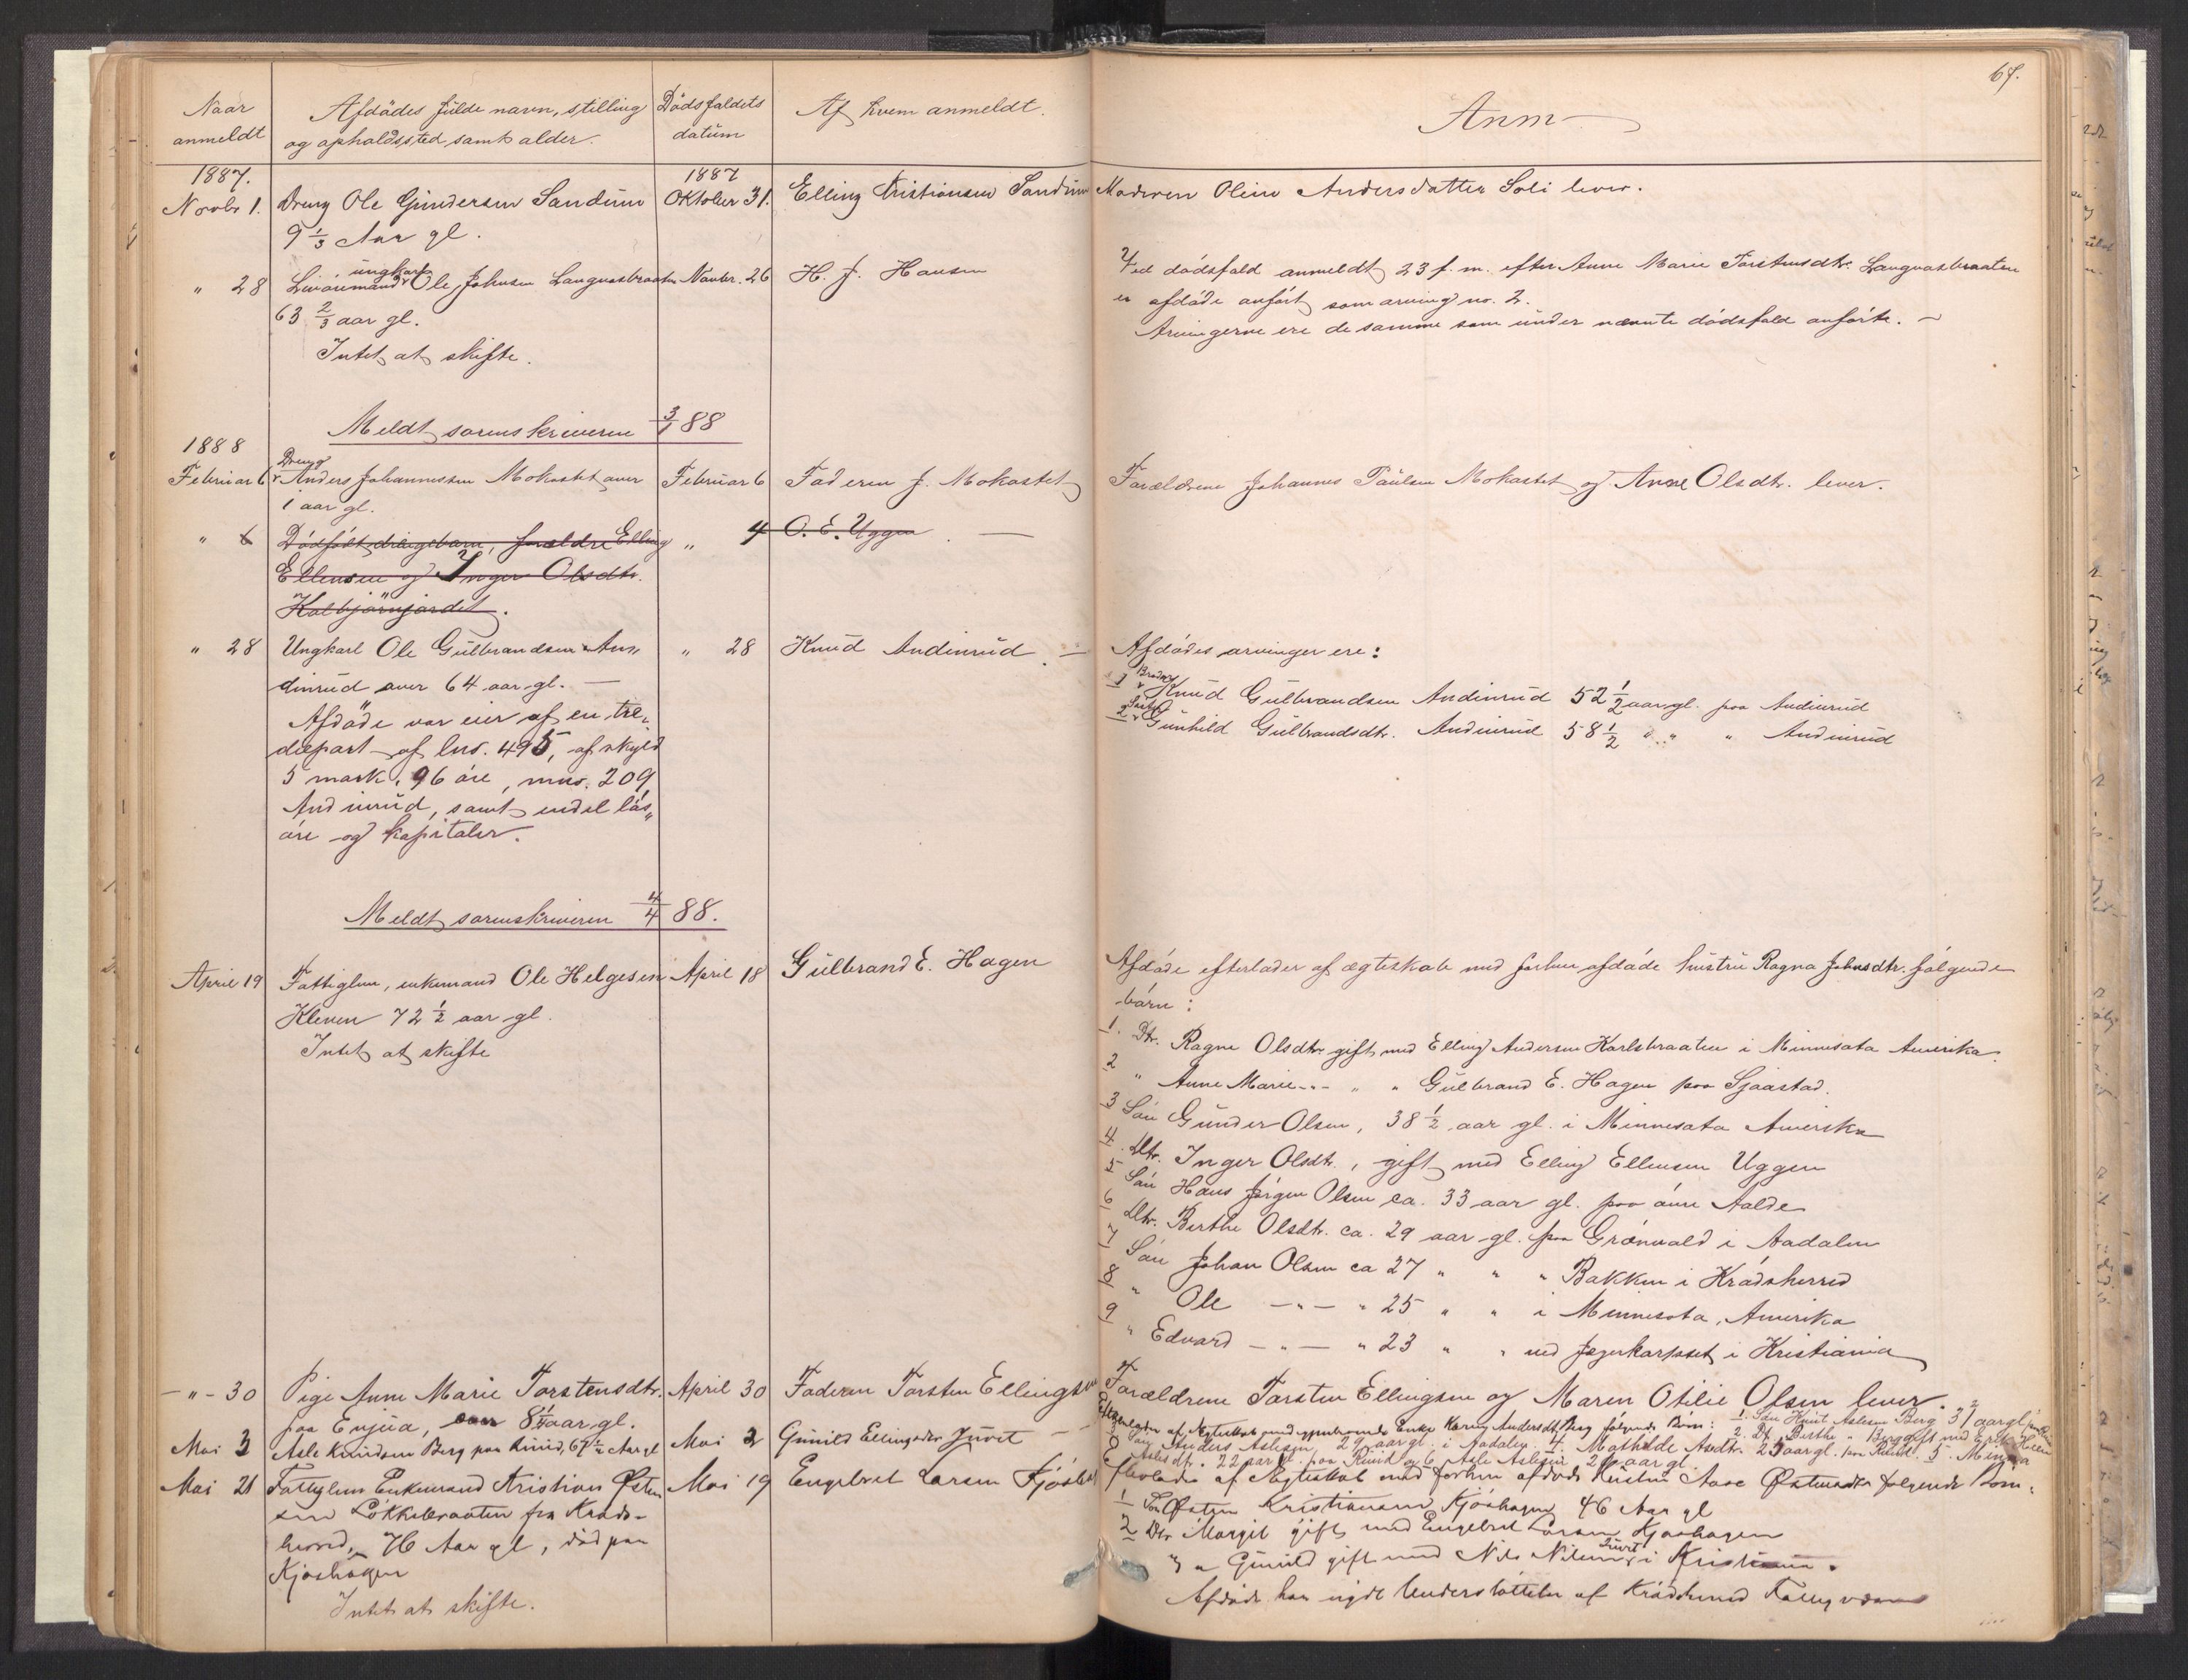 67.
Naar anmeldt
Afdödes fulde navn, stilling og opholdssted, samt alder.
Dödsfaldets datum
Af hvem anmeldt.
Anm
1887.
1887
Novbr 1. Dreng Ole Gundersen Sandum Oktober 31. Elling Kristiansen Sandum Moderen Oline Andersdatter Soli lever.
9 1/3 Aar gl.
" 28 Livöremand ungkarl Ole Johnsen Langvasbraaten Novbr. 26 H. J. Hansen
63 2/3 aar gl.
Intet at skifte.
Ved dödsfald anmeldt 23 f. m. efter Anne Marie Torstensdtr. Langvasbraaten
er afdöde anfört som arving no. 2.
Arvingerne ere de samme som under nævnte dödsfald anförte. –
Meldt sorenskriveren 3/1 88
1888
Februar 6 Dreng Anders Johannessen Mokastet over Februar 6 Faderen J. Mokastet Forældrene Johannes Paulsen Mokastet og Anne Olsdtr. lever.
1 aar gl.
" 6 Dödfödt drengebarn, forældre Elling " 4 O. E. Uggen
Ellensen og Inger Olsdtr.
Kolbjörnjordet.
" 28 Ungkarl Ole Gulbrandsen An- " 28 Knud Andinrud. –
dinrud over 64 aar gl. –
Afdöde var eier af en tre-
diepart af lno. 495, af skyld
5 mark, 96 öre, mno. 209,
Andinrud, samt endel lös-
öre og kapitaler.
Afdödes arvinger ere:
1 Broder Knud Gulbrandsen Andinrud 52 1/2 aar gl. paa Andinrud
2 Söster Gunhild Gulbrandsdtr. Andinrud 58 1/2 " " Andinrud
Meldt sorenskriveren 4/4 88.
April 19 Fattiglem, enkemand Ole Helgesen April 18 Gulbrand E. Hagen
Kleven 72 1/2 aar gl.
Intet at skifte
Afdöde efterlader af ægteskab med forhen afdöde hustru Ragna Johnsdtr. fölgende
börn:
1. Dtr. Ragne Olsdtr. gift med Elling Andersen Karlsbraaten i Minnesota Amerika.
2 " Anne Marie -"- " " Gulbrand E. Hagen paa Sjaastad.
3 Sön Gunder Olsen, 38 1/2 aar gl. i Minnesota Amerika
4. Dtr. Inger Olsdtr., gift med Elling Ellensen Uggen
5 Sön Hans Jörgen Olsen ca. 33 aar gl. paa övre Aalde
6 Dtr. Berthe Olsdtr. ca. 29 aar gl. paa Grönvald i Aadalen
7 Sön Johan Olsen ca 27 " " " Bakken i Krödsherred
8 " Ole -"- " 25 " " i Minnesota, Amerika
9 " Edvard -"- " 23 " " ved Jægerkorpset i Kristiania
-"- 30 Pige Anne Marie Torstensdtr. April 30 Faderen Torsten Ellingsen Forældrene Torsten Ellingsen og Maren Otilie Olsen lever.
paa Enjua, over 8 aar gl.
Mai 3 Asle Knudsen Berg paa Ruud, 67 1/2 Aar gl Mai 2 Gunild Ellingsdtr Juvet
Efterlader af Ægteskab med gjenlevende Enke Karen Andersdt Berg fölgende Börn: 1. Sön Knut Aslesen Berg 31 aar gl paa Ruud
2. Dt. Birthe " Berg gift med Erik Hallen
3 Sön Anders Aslesen 29 aar gl. i Aadalen 4. Mathilde Asdtr. 25 aar gl. paa Ruud. 5. Minna
Aslesdt. 22 aar gl. paa Ruud og 6 Asle Aslesen 20 aar gl.
Mai 21 Fattiglem Enkemand Kristian Østen- Mai 19 Engebret Larsen Kjöshagen
sen Lökkebraaten fra Kröds-
herred, 76 Aar gl, död paa
Kjöshagen
Intet at skifte.
Efterlader af Ægteskab med forhen afdöde Hustru Aase Østensdtr fölgende Börn:
1 Sön Østen Kristiansen Kjöshagen 46 Aar gl
2 Dtr Margit gift med Engebret Larsen Kjöshagen
3 " Gunild gift med Nils Nilsen Juvet i Kristiania.
Afdöde har nydt Understöttelse af Krödsherred Fattigvæsen